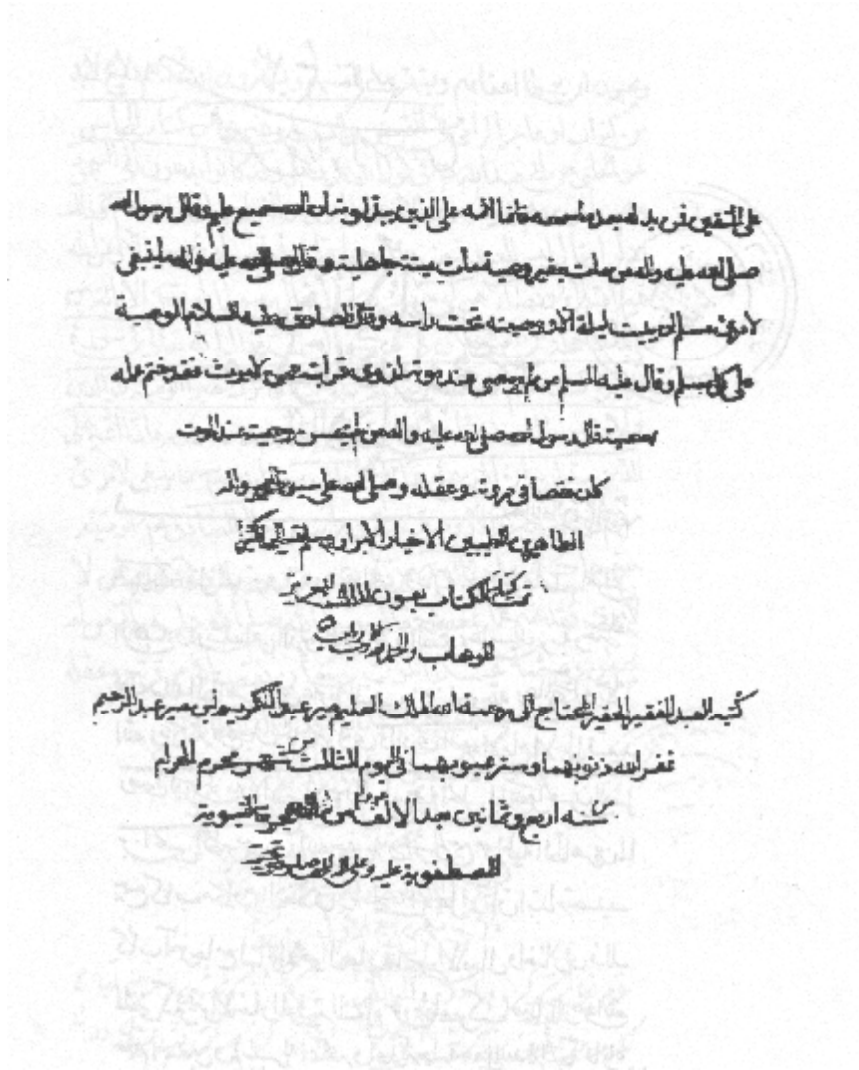 على المتقين فمن بدله بعد ما سمعه فانما اثمه على الذين يبدلونه ان الله سميع عليم وقال رسول الله
صلى الله عليه واله من مات بغير وصية مات ميتة جاهلية وقال صلى الله عليه واله ما ينبغي
لامرئ مسلم ان يبيت ليلة الا ووصيته تحت راسه وقال الصادق عليه السلام الوصية
على كل مسلم وقال عليه السلم من لم يوص عند موته لذوى قرابته ممن لا يرث فقد ختم عمله
بمعصيته قال رسول الله صلى الله عليه واله من لم يحسن وصيته عند الموت
كان نقصا في مروته وعقله وصلى الله على سيدنا محمد واله
الطاهرين الطيبين الاخيار الابرار وسلم تسليما كثيرا
تمت الكتاب بعون الملك العزيز
الوهاب والحمد لله رب
كتبه العبد الفقير الحقير المحتاج الى رحمة الله الملك العليم مير عبد الكريم ابن مير عبد الرحيم
غفر الله ذنوبهما وستر عيوبهما في اليوم الثالث من شهر محرم الحرام
من سنه اربع وثمانين بعد الالف من الهجرة النبوية
المصطفوية عليه وعلى